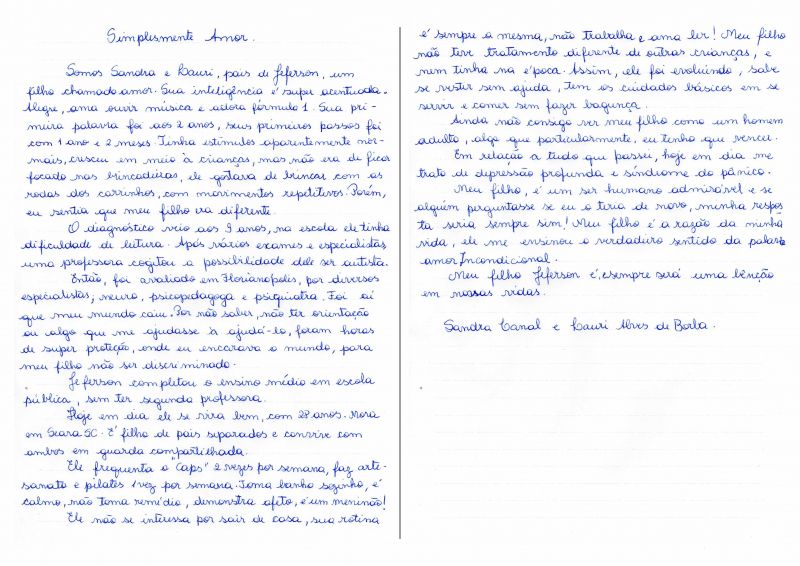 Simplesmente Amor.
Somos Sandra e Lauri, pais de Jeferson, um
filho chamado amor. Sua inteligência é super acentuada.
Alegre, ama ouvir música e adora fórmula 1. Sua pri-
meira palavra foi aos 2 anos, seus primeiros passos foi
com 1 ano e 2 meses. Tinha estímulos aparentemente nor-
mais, cresceu em meio à crianças, mas não era de ficar
focado nas brincadeiras, ele gostava de brincar com as
rodas dos carrinhos, com movimentos repetitivos. Porém,
eu sentia que meu filho era diferente.
O diagnóstico veio aos 9 anos, na escola ele tinha
dificuldade de leitura. Após vários exames e especialistas
uma professora cogitou a possibilidade dele ser autista.
Então, foi avaliado em Florianópolis, por diversos
especialistas, neuro, psicopedagoga e psiquiatra. Foi aí
que meu mundo caiu. Por não saber, não ter orientação
ou algo que me ajudasse à ajudá-lo, foram horas
de super proteção, onde eu encarava o mundo, para
meu filho não ser discriminado.
Jeferson completou o ensino médio em escola
pública, sem ter segunda professora.
Hoje em dia ele se vira bem, com 28 anos. Mora
em Seara SC. É filho de pais separados e convive com
ambos em guarda compartilhada.
Ele frequenta o "Caps" 2 vezes por semana, faz arte-
sanato e pilates 1 vez por semana. Toma banho sozinho, é
calmo, não toma remédio, demonstra afeto, é um meninão!
Ele não se interessa por sair de casa, sua rotina
é sempre a mesma, não trabalha e ama ler! Meu filho
não teve tratamento diferente de outras crianças, e
nem tinha na época. Assim, ele foi evoluindo, sabe
se vestir sem ajuda, tem os cuidados básicos em se
servir e comer sem fazer bagunça.
Ainda não consigo ver meu filho como um homem
adulto, algo que particularmente, eu tenho que vencer.
Em relação a tudo que passei, hoje em dia me
trato de depressão profunda e síndrome do pânico.
Meu filho, é um ser humano admirável e se
alguém perguntasse se eu o teria de novo, minha respos
ta seria sempre sim! Meu filho é a razão da minha
vida, ele me ensinou o verdadeiro sentido da palavra
amor Incondicional.
Meu filho Jeferson é, e sempre será uma bênção
em nossas vidas.
Sandra Canal e Lauri Alves de Borba.